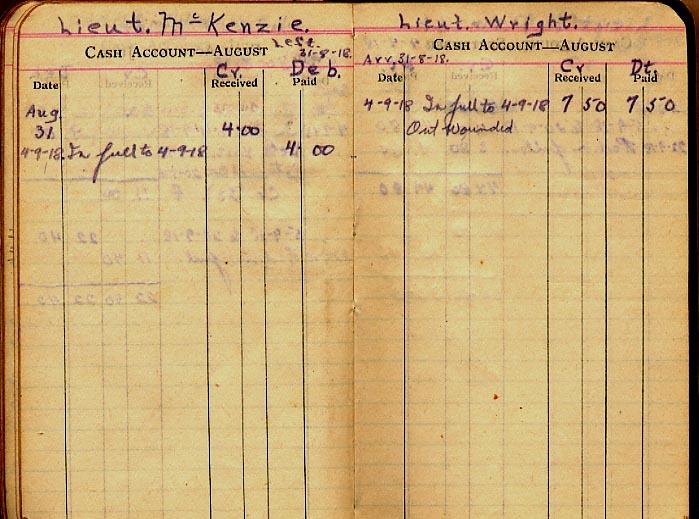 Lieut. McKenzie.
CASH ACCOUNT—AUGUST Left 31-8-18.
Cr. Deb.
Date Received Paid
Aug.
31 4.00
4-9-18. In full to 4-9-18 4. 00
Lieut. Wright.
CASH ACCOUNT—AUGUST
Arr. 31-8-18.
Cr Dt
Date Received Paid
4-9-18 In full to 4-9-18 7 50 7 50
Out Wounded